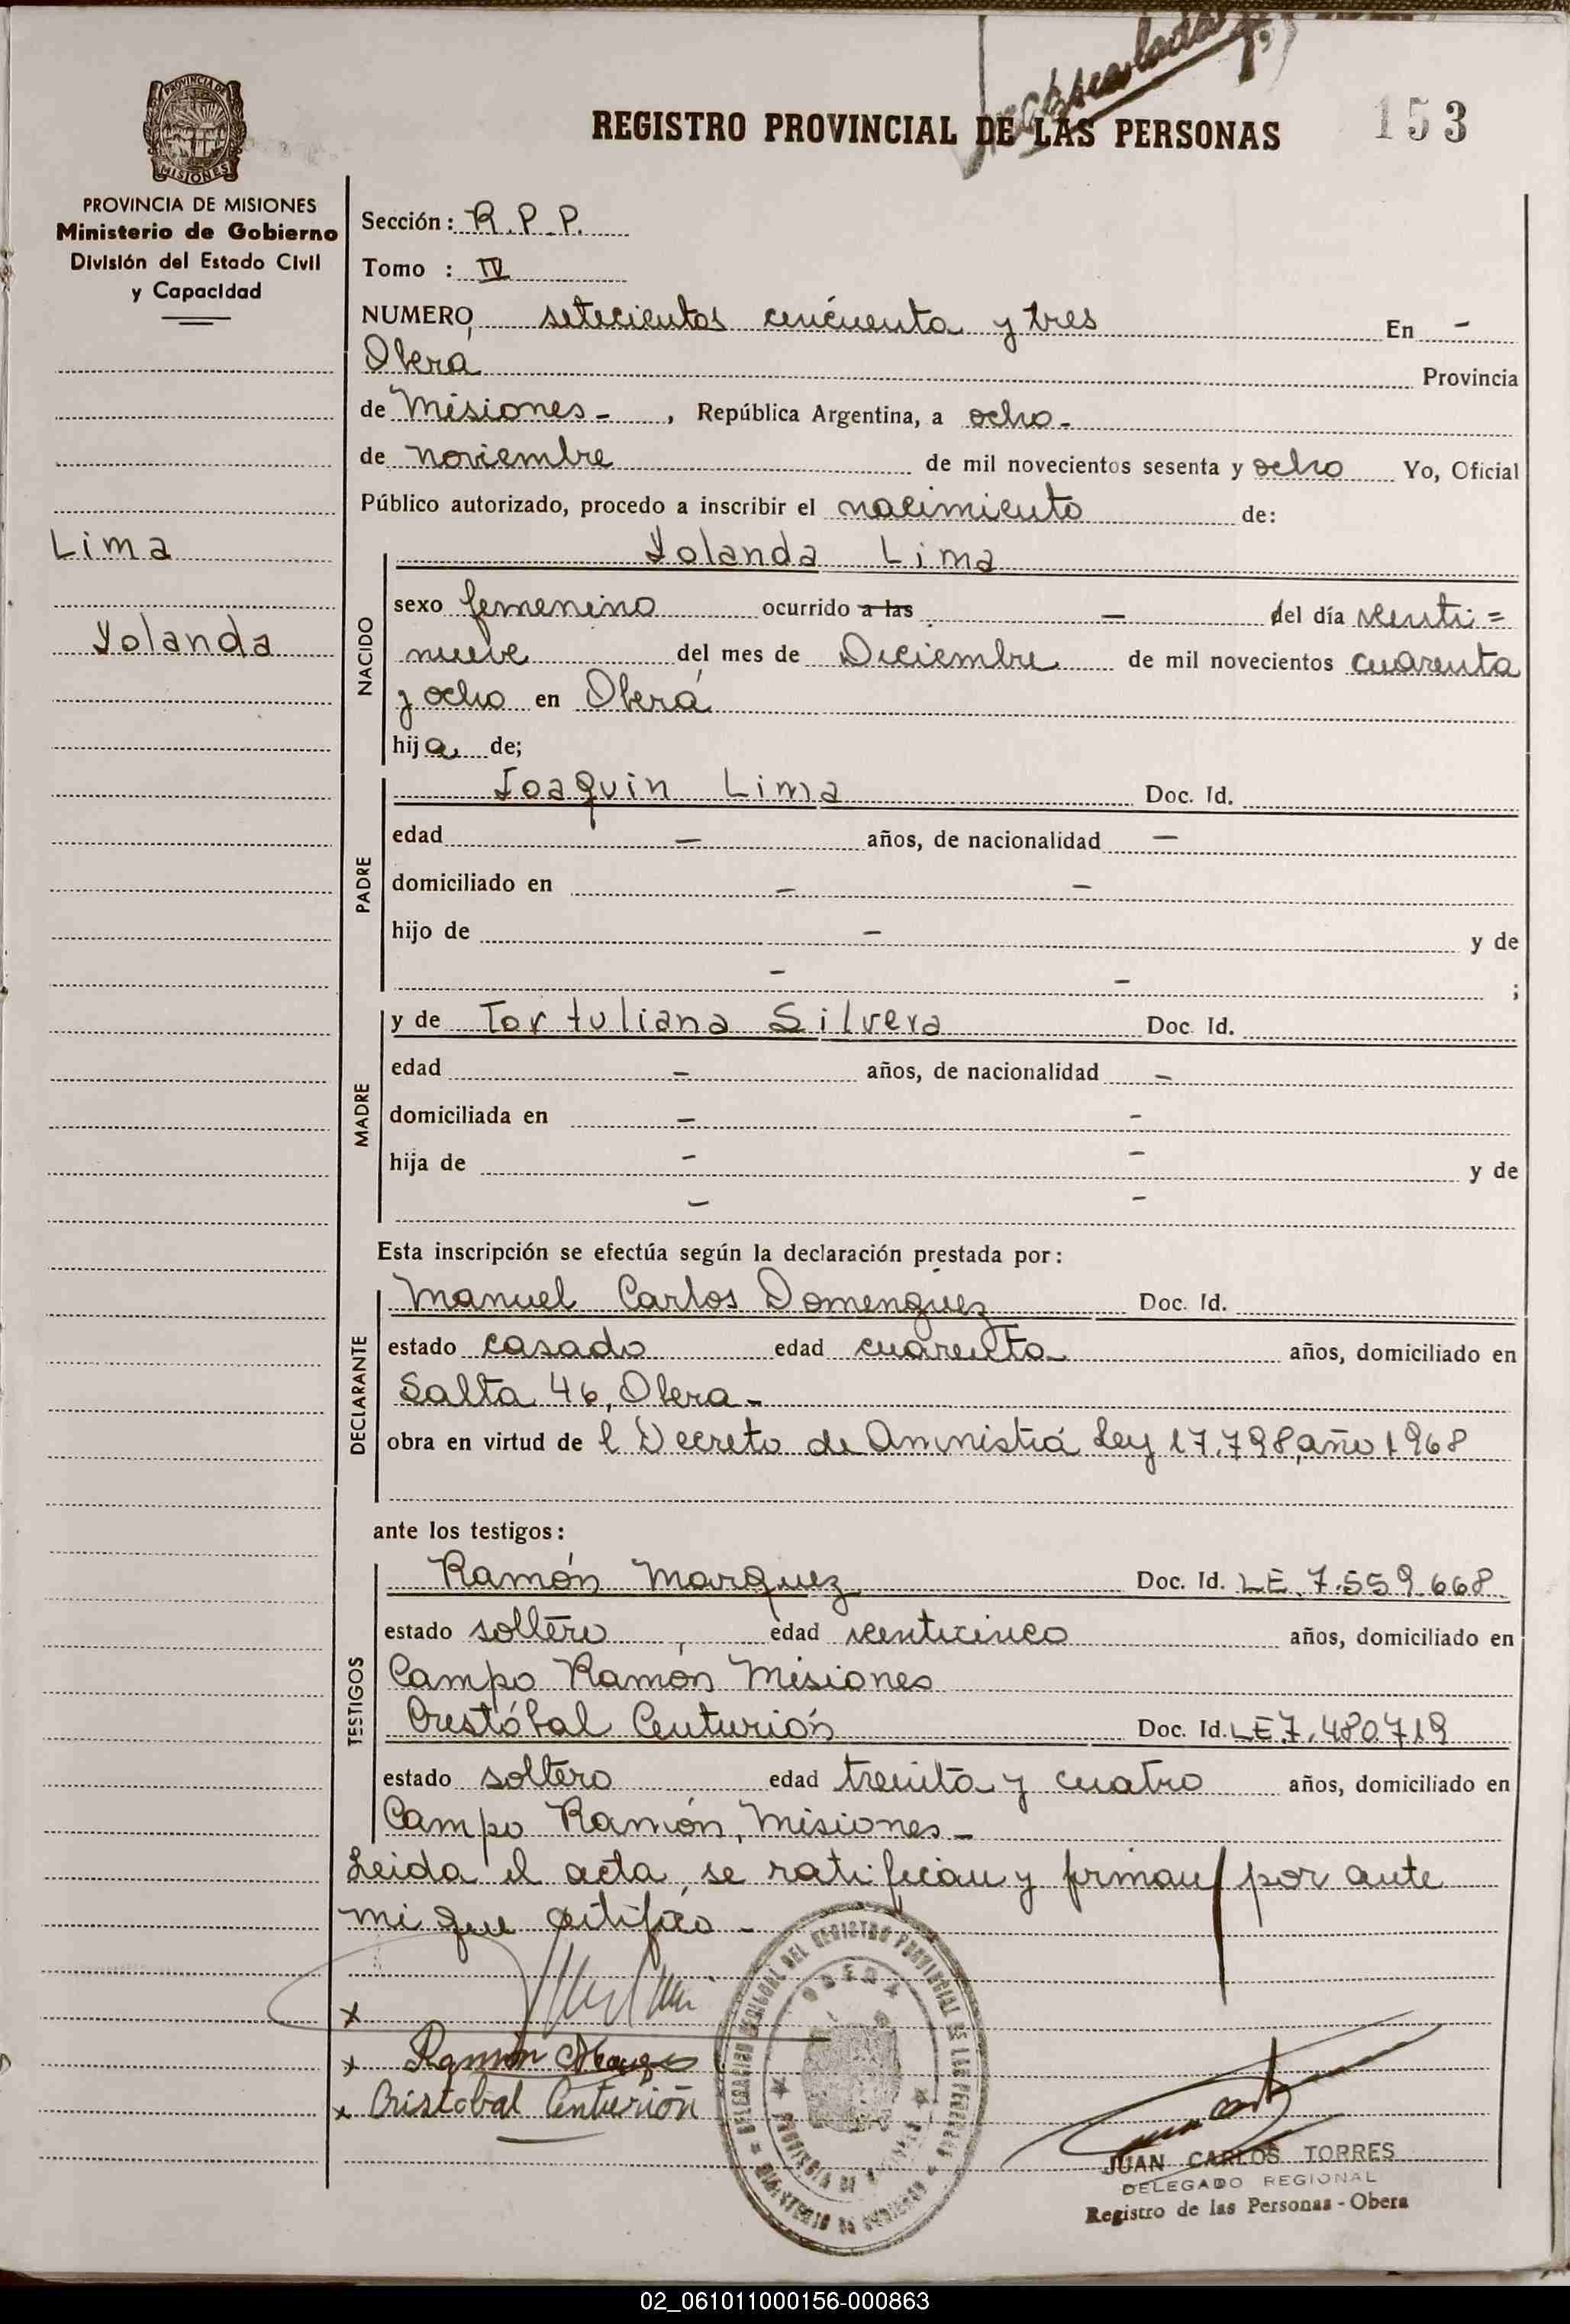 REGISTRO PROVINCIAL DE LAS PERSONAS
153
PROVINCIA DE MISIONES
PROVINCIA DE MISIONES
Ministerio de Gobierno
División del Estado Civil
y Capacidad
Sección: R.P.P.
Tomo : IV
NUMERO setecientos cincuenta y tres En -
Oberá Provincia
de Misiones - , República Argentina, a ocho -
de noviembre de mil novecientos sesenta y ocho Yo, Oficial
Público autorizado, procedo a inscribir el nacimiento de:
Lima
Yolanda
NACIDO
Yolanda Lima
sexo femenino ocurrido a las - del día venti =
nueve del mes de Diciembre de mil novecientos cuarenta
y ocho en Oberá
hija de;
PADRE
Joaquin Lima Doc. Id.
edad - años, de nacionalidad -
domiciliado en - -
hijo de - y de
- - ;
MADRE
y de Tortuliana Silvera Doc. Id.
edad - años, de nacionalidad -
domiciliada en - -
hija de - - y de
- -
Esta inscripción se efectúa según la declaración prestada por:
DECLARANTE
Manuel Carlos Domenguez Doc. Id.
estado casado edad cuarenta años, domiciliado en
Salta 46, Obera -
obra en virtud de l Decreto de Amnistiá Ley 17.798, año 1968
ante los testigos:
TESTIGOS
Ramón Marquez Doc. Id. LE. 7.559.668
estado soltero, edad venticinco años, domiciliado en
Campo Ramón Misiones
Cristóbal Centurión Doc. Id. LE 7.480.719
estado soltero edad treinta y cuatro años, domiciliado en
Campo Ramón, Misiones -
Leida el acta, se ratifican y firman por ante
mi que certifico -
x
x Ramón Marques
x Cristobal Centurión
DELEGACION REGIONAL DEL REGISTRO PROVINCIAL DE LAS PERSONAS
OBERA
PROVINCIA DE MISIONES
MINISTERIO DE GOBIERNO
JUAN CARLOS TORRES
DELEGADO REGIONAL
Registro de las Personas - Obera
02_061011000156-000863